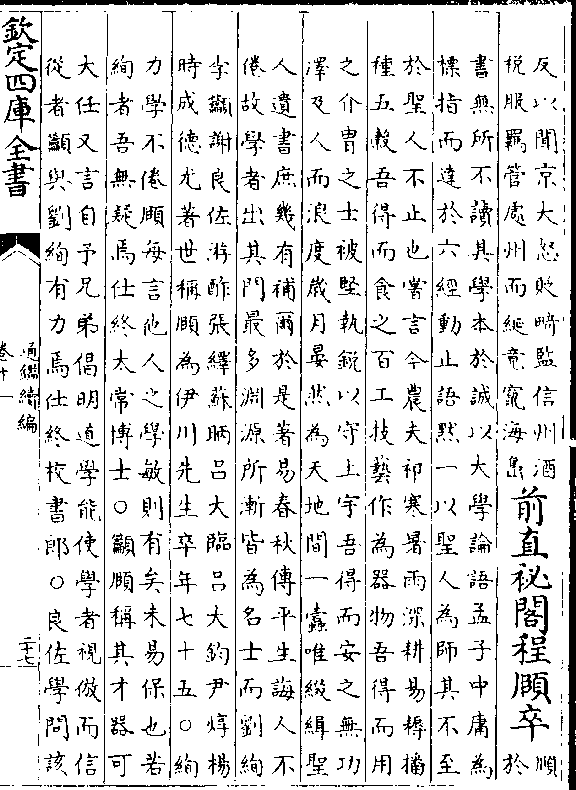 反以聞京大怒貶畸監信州酒
稅服羈管處州而綖竟竄海島
前直祕閣程頤卒
頤於
書無所不讀其學本於誠以大學論語孟子中庸為
標指而達於六經動止語默一以聖人為師其不至
於聖人不止也嘗言今農夫祁寒暑雨深耕易耨播
種五穀吾得而食之百工技藝作為器物吾得而用
之介胄之士被堅執銳以守土宇吾得而安之無功
澤及人而浪度歲月晏然為天地間一蠧唯綴緝聖
人遺書庶幾有補爾於是著易春秋傳平生誨人不
倦故學者出其門最多淵源所漸皆為名士而劉絢
李籲謝良佐游酢張繹蘇昞呂大臨呂大鈞尹焞楊
時成德尤著世稱頤為伊川先生卒年七十五○絢
力學不倦頤每言他人之學敏則有矣未易保也若
絢者吾無疑焉仕終太常博士○籲頤稱其才器可
大任又言自予兄弟倡明道學能使學者視倣而信
從者籲與劉絢有力焉仕終校書郎○良佐學問該
欽定四庫全書
通鑑續編
卷十一
二十七